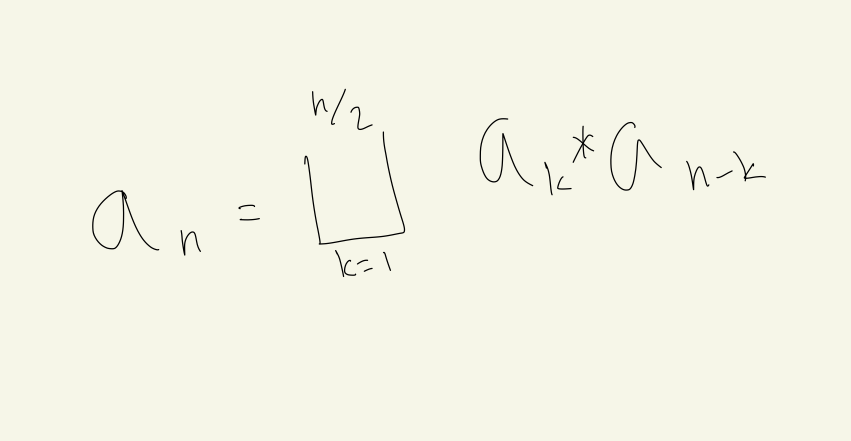 a_n = ∐_{k=1}^{n/2} a_k * a_{n-k}